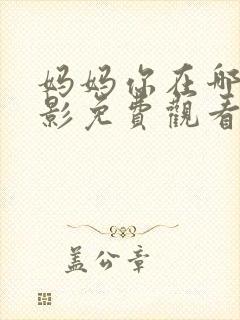 妈妈你在哪
影免費觀看
盖公章